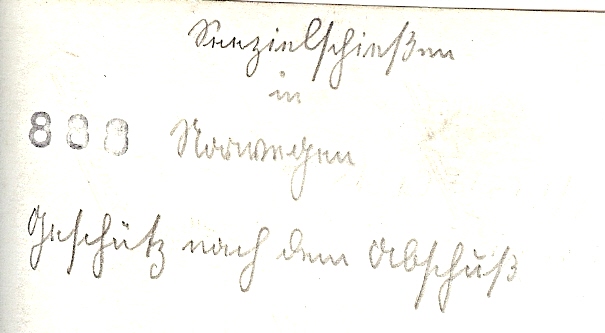 Seezielschießen
in
888 Norwegen
Geschütz nach dem Abschuß